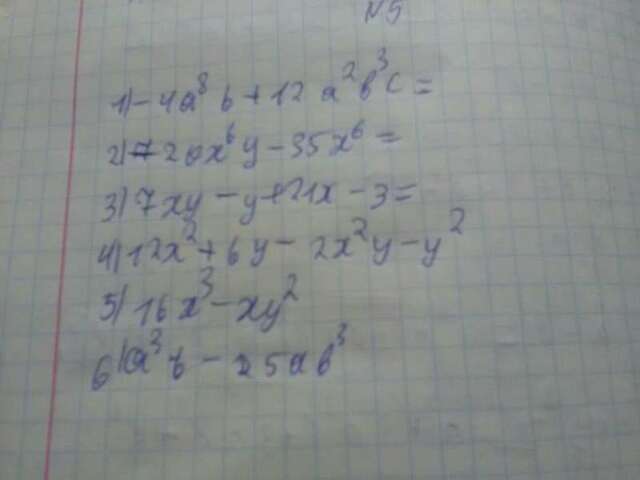 N5
1) -4a⁸b + 12a²b³c =
2) 20x⁶y - 35x⁶ =
3) 7xy - y + 21x - 3 =
4) 12x² + 6y - 2x²y - y²
5) 16x³ - xy²
6) a³b - 25ab³